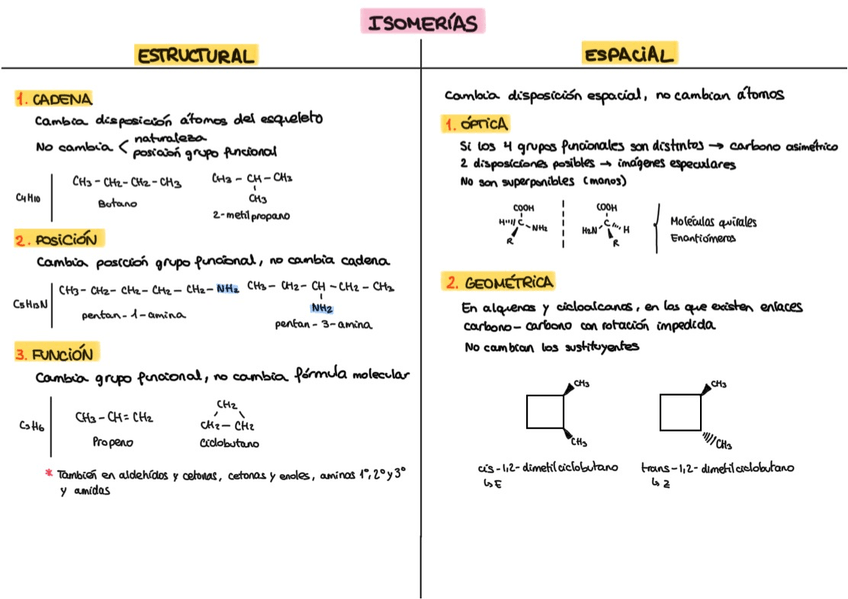 ISOMERÍAS
ESTRUCTURAL
1. CADENA
Cambia disposición átomos del esqueleto
No cambia < naturaleza
posición grupo funcional
C4H10
CH3 - CH2 - CH2 - CH3
Butano
CH3 - CH - CH3
CH3
2-metilpropano
2. POSICIÓN
Cambia posición grupo funcional, no cambia cadena
C5H13N
CH3 - CH2 - CH2 - CH2 - CH2 - NH2
pentan-1-amina
CH3 - CH2 - CH - CH2 - CH3
NH2
pentan-3-amina
3. FUNCIÓN
Cambia grupo funcional, no cambia fórmula molecular
C3H6
CH3 - CH = CH2
Propeno
CH2
CH2 - CH2
Ciclobutano
* También en aldehídos y cetonas, cetonas y enoles, aminas 1º, 2º y 3º
y amidas
ESPACIAL
Cambia disposición espacial, no cambian átomos
1. ÓPTICA
Si los 4 grupos funcionales son distintos → carbono asimétrico
2 disposiciones posibles → imágenes especulares
No son superponibles (manos)
COOH
H C NH2
R
COOH
H2N C H
R
Moléculas quirales
Enantiómeros
2. GEOMÉTRICA
En alquenos y cicloalcanos, en los que existen enlaces
carbono-carbono con rotación impedida
No cambian los sustituyentes
CH3
CH3
cis-1,2-dimetilciclobutano
↳ E
CH3
CH3
trans-1,2-dimetilciclobutano
↳ Z